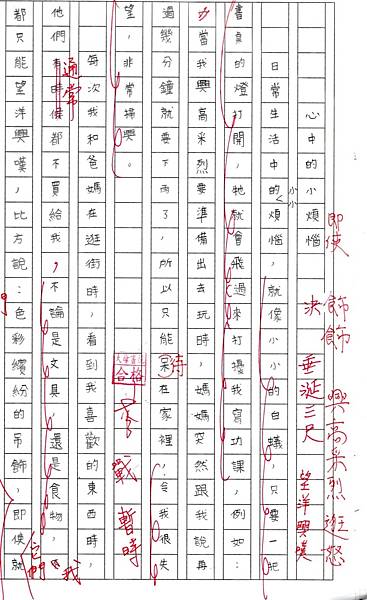 心中的小小煩惱
日常生活中的煩惱，就像小小的白蟻，只要一把
小小
書桌的燈打開，牠就會飛過來打擾我寫功課，例如：
每當我興高采烈要準備出去玩時，媽媽突然跟我說再
過幾分鐘就要下雨了，所以只能呆在家裡！令我很失
待
望，非常掃興。
合格
每次我和爸媽在逛街時，看到我喜歡的東西時，
他們有時候都不買給我，不論是文具，還是食物，我
通常
都只能望洋興嘆，比方說：色彩繽紛的吊飾，即使就
它們
即使
飾飾
垂涎三尺
興高采烈
逛
望洋興嘆
戰
暫時